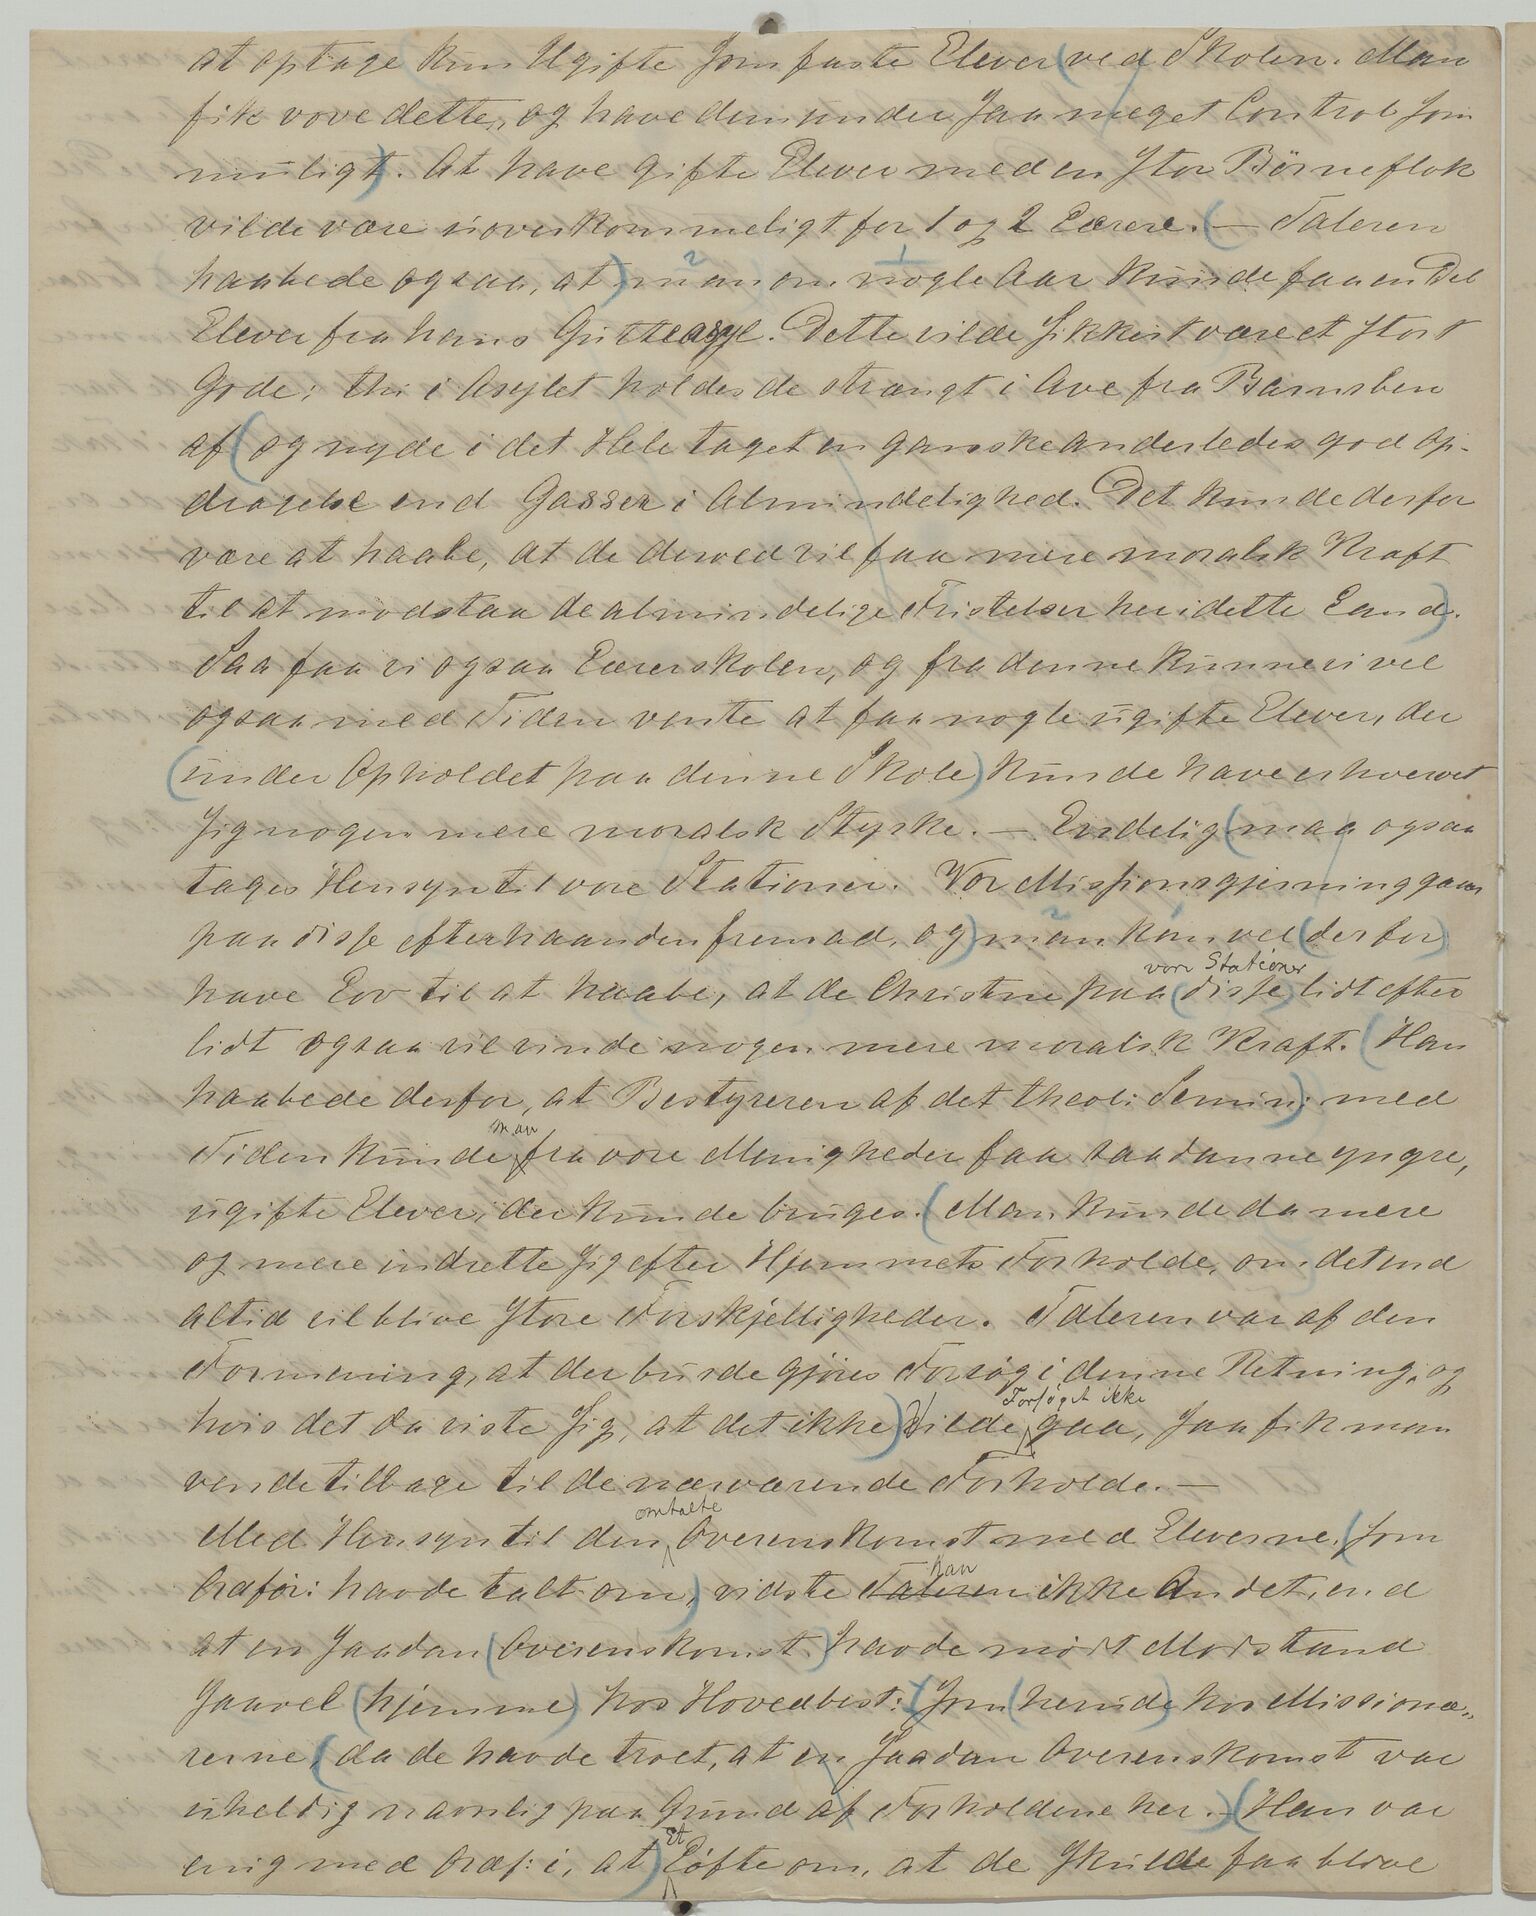 at optage kun Ugifte som faste Elever (ved Skolen. Man
fik vove dette, og have dem under saa meget Control som
muligt). At have gifte Elever med en stor Börneflok
vilde være uoverkommeligt for 1 og 2 Lærere. (— Taleren
haabede ogsaa, at) man om nogle Aar kunde faa en Del
Elever fra hans Gutteasyl. Dette vilde sikkert være et stort
Gode; thi i Asylet holdes de strængt i Ave fra Barnsben
af (og nyde i det Hele taget en ganske anderledes god Op-
dragelse end Gasser i Almindelighed. Det kunde derfor
være at haabe, at de derved vil faa mere moralsk Kraft
til at modstaa de almindelige Fristelser her i dette Land).
Saa faa vi ogsaa Lærerskolen, og fra denne kunne vi vel
ogsaa med Tiden vente at faa nogle ugifte Elever, der
(under Opholdet paa denne Skole) kunde have erhvervet
sig nogen mere moralsk Styrke. — Endelig (maa ogsaa
tages Hensyn til vore Stationer. Vor Missionsgjerning gaar
paa disse efterhaanden fremad, og) man kan vel (derfor)
vore Stationer
have Lov til at haabe, at de Christne paa (disse) lidt efter
lidt ogsaa vil vinde nogen mere moralsk Kraft. (Han
haabede derfor, at Bestyreren af det theol: Semin:) med
man
Tiden kunde fra vore Menigheder faa saadanne yngre,
ugifte Elever, der kunde bruges. (Man kunde da mere
og mere indrette sig efter Hjemmets Forholde, om det end
altid vil blive store Forskjelligheder. Taleren var af den
Formening, at der burde gjøres Forsøg i denne Retning, og
Forsøget ikke
hvis det da viste sig, at det ikke) Vilde gaa, saa fik man
vende tilbage til de nærværende Forholde. —
omtalte
Med Hensyn til den Overenskomst med Eleverne, (som
han
Ordfør: havde talt om), vidste Taleren ikke Andet, end
at en saadan (Overenskomst) havde mødt Modstand
saavel (hjemme) hos Hovedbest: (som (herude) hos Missionæ-
rerne, (da de havde troet, at en saadan Overenskomst var
uheldig navnlig paa Grund af Forholdene her. —) (Han var
Et
enig med Ordf: i, at) Løfte om, at de skulde faa blive